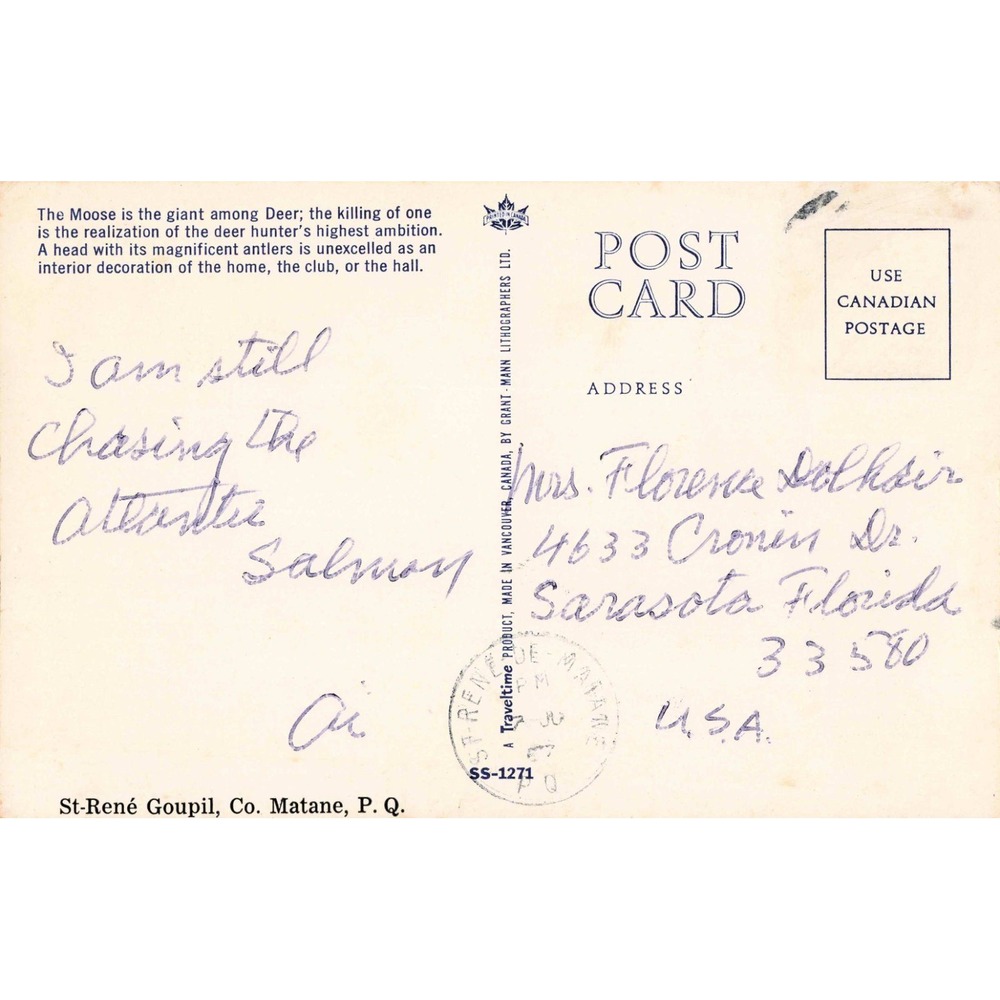 The Moose is the giant among Deer; the killing of one
is the realization of the deer hunter's highest ambition.
A head with its magnificent antlers is unexcelled as an
interior decoration of the home, the club, or the hall.
I am still
chasing the
Atlantic
Salmon
St-René Goupil, Co. Matane, P. Q.
PRINTED IN CANADA
A Traveltime PRODUCT, MADE IN VANCOUVER, CANADA, BY GRANT-MANN LITHOGRAPHERS LTD.
SS-1271
ST-RENÉ-DE-MATANE
PM
P Q
POST
CARD
ADDRESS
USE
CANADIAN
POSTAGE
Mrs. Florence Dolhair
4633 Cronin Dr.
Sarasota Florida
33580
U.S.A.